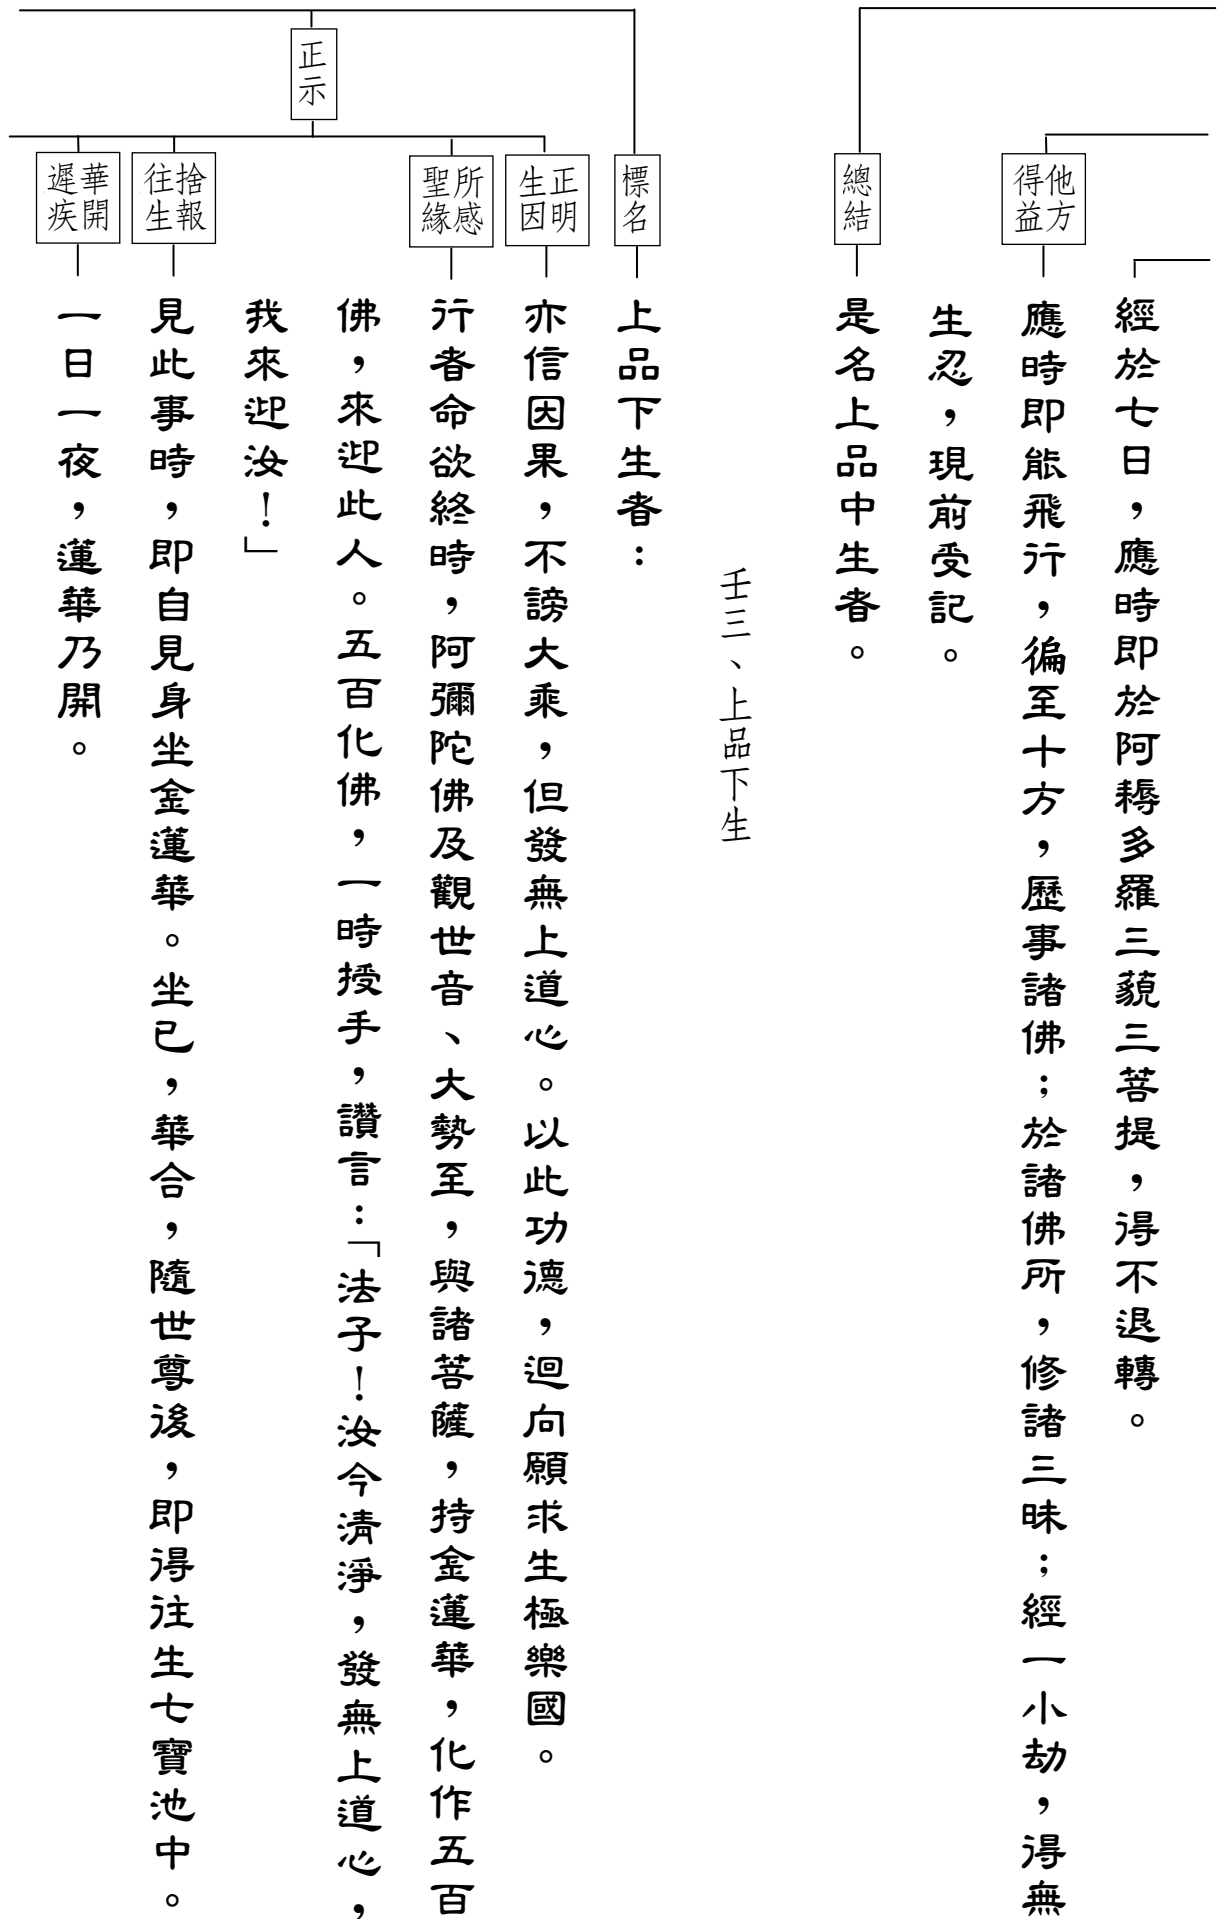 經於七日，應時即於阿耨多羅三藐三菩提，得不退轉。
他方
得益
應時即能飛行，徧至十方，歷事諸佛；於諸佛所，修諸三昧；經一小劫，得無
生忍，現前受記。
總結
是名上品中生者。
壬三、上品下生
標名
上品下生者：
正示
正明
生因
亦信因果，不謗大乘，但發無上道心。以此功德，迴向願求生極樂國。
所感
聖緣
行者命欲終時，阿彌陀佛及觀世音、大勢至，與諸菩薩，持金蓮華，化作五百
佛，來迎此人。五百化佛，一時授手，讚言：「法子！汝今清淨，發無上道心，
我來迎汝！」
捨報
往生
見此事時，即自見身坐金蓮華。坐已，華合，隨世尊後，即得往生七寶池中。
華開
遲疾
一日一夜，蓮華乃開。